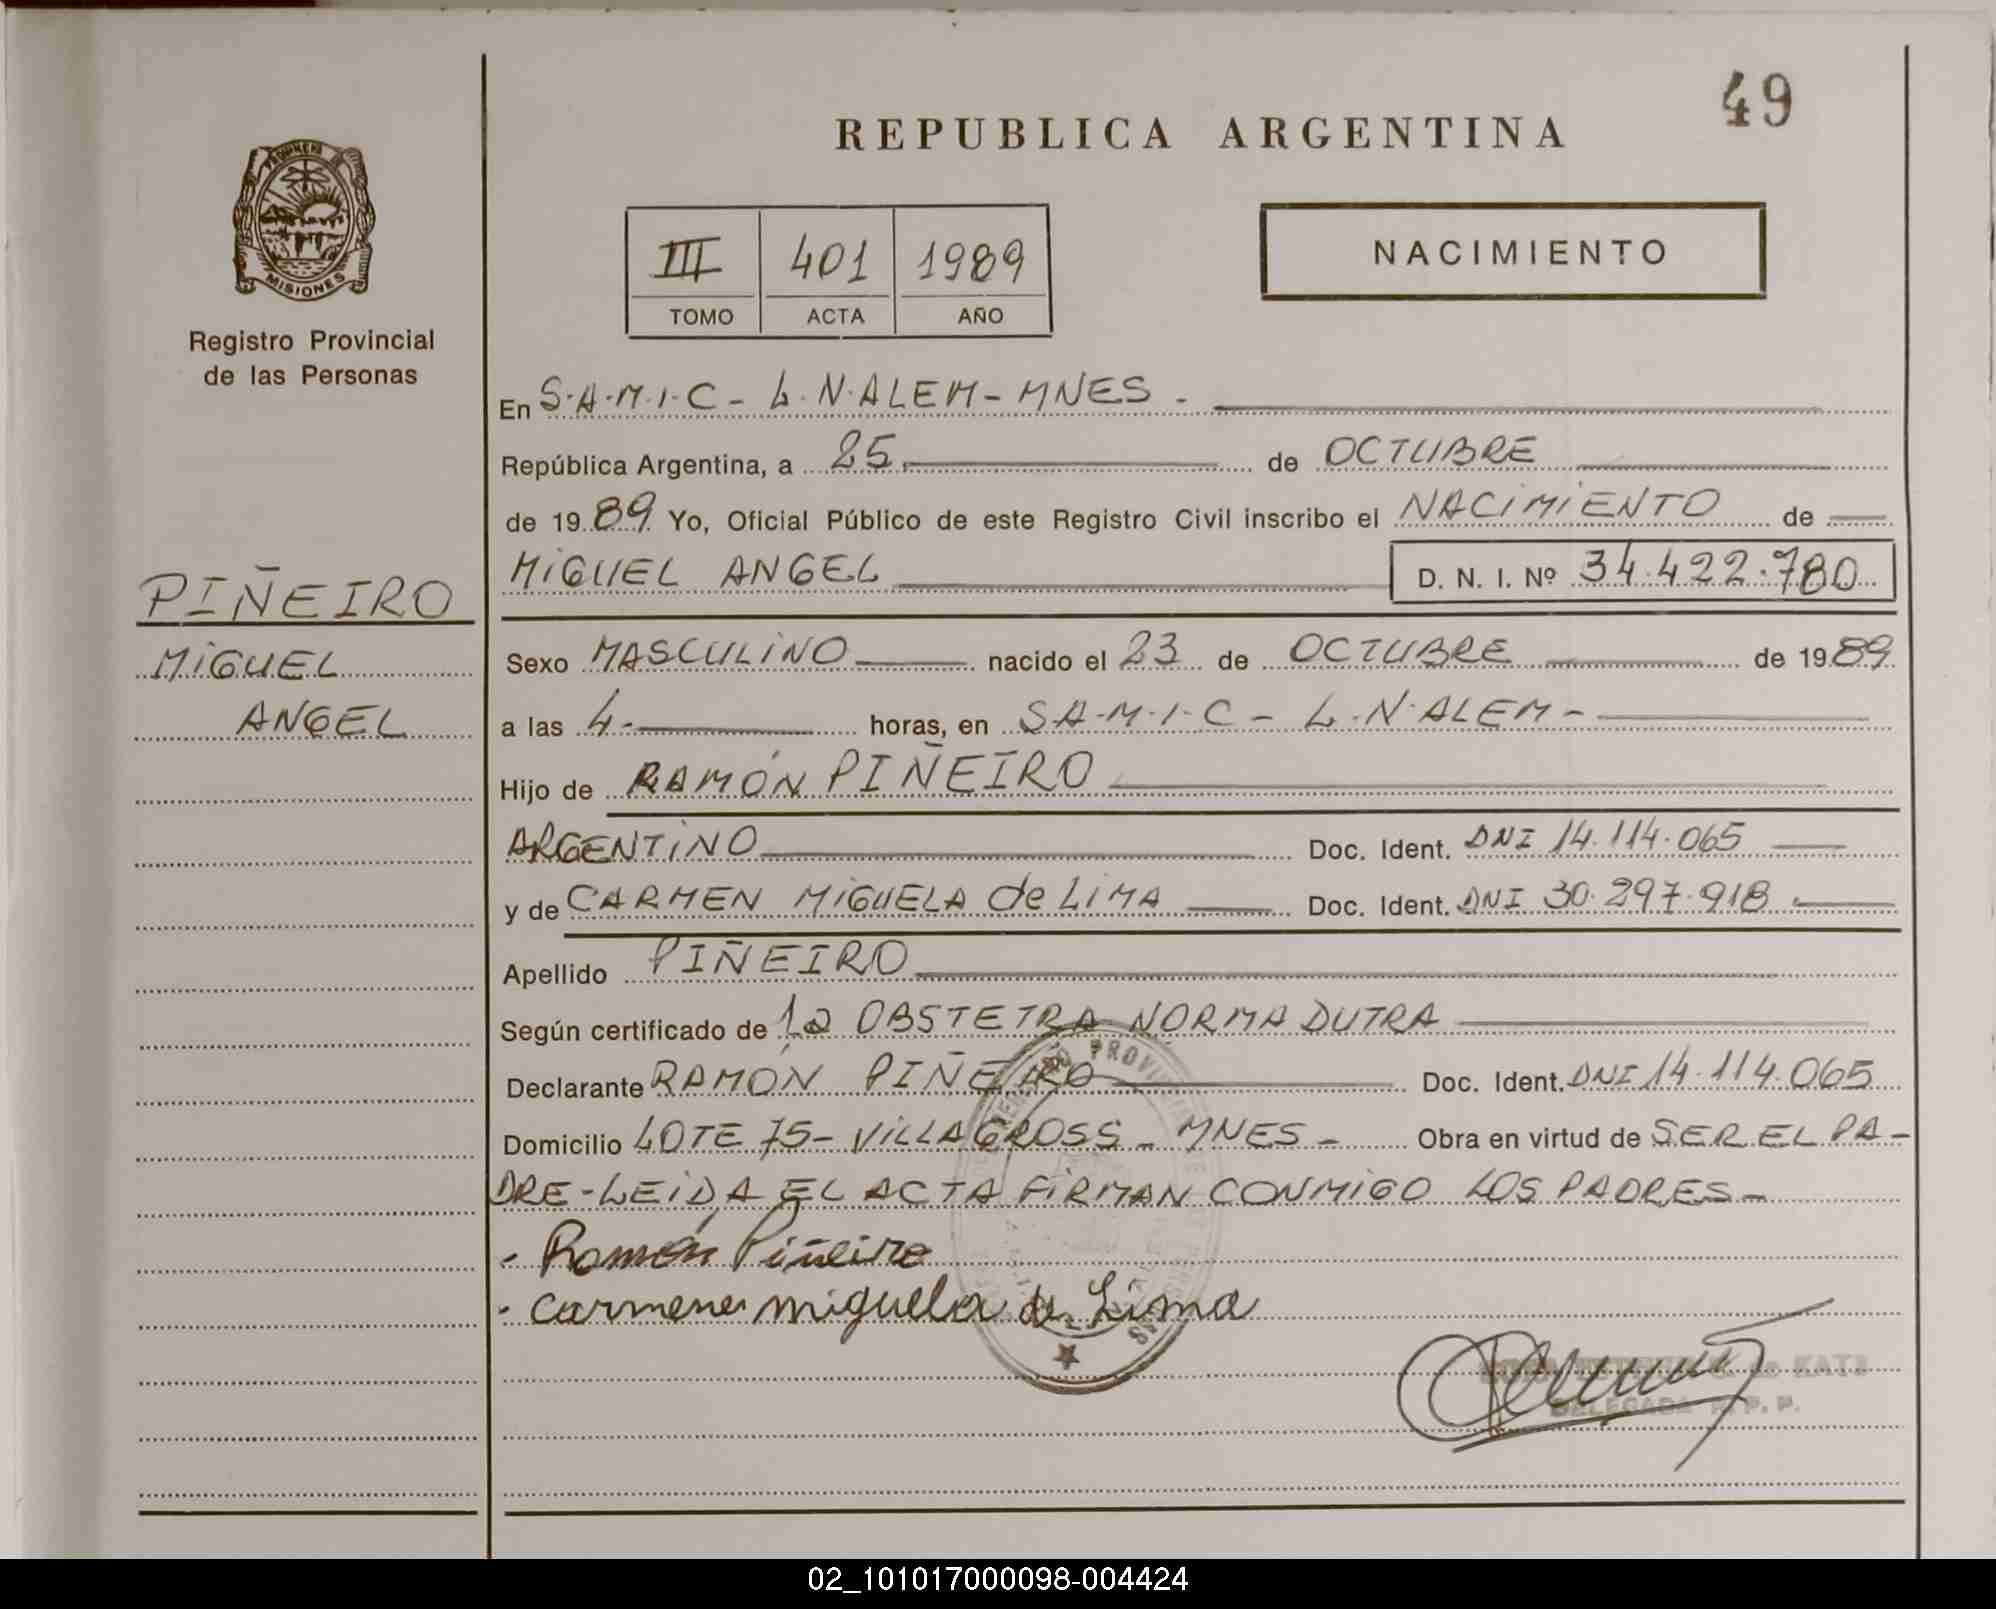 49
REPUBLICA ARGENTINA
PROVINCIA DE
MISIONES
Registro Provincial
de las Personas
III 401 1989
TOMO ACTA AÑO
NACIMIENTO
En S.A.M.I.C - L.N.ALEM - MNES -
República Argentina, a 25 de OCTUBRE
de 1989 Yo, Oficial Público de este Registro Civil inscribo el NACIMIENTO de
MIGUEL ANGEL D. N. I. Nº 34.422.780
PIÑEIRO
MIGUEL
ANGEL
Sexo MASCULINO nacido el 23 de OCTUBRE de 1989
a las 4- horas, en S.A.M.I.C - L.N.ALEM -
Hijo de RAMÓN PIÑEIRO
ARGENTINO Doc. Ident. DNI 14.114.065
y de CARMEN MIGUELA de LIMA Doc. Ident. DNI 30.297.918
Apellido PIÑEIRO
Según certificado de la OBSTETRA NORMA DUTRA
Declarante RAMÓN PIÑEIRO Doc. Ident. DNI 14.114.065
Domicilio LOTE 75 - VILLA GROSS - MNES - Obra en virtud de SER EL PA-
DRE - LEIDA EL ACTA FIRMAN CONMIGO LOS PADRES -
- Ramón Piñeiro
- Carmen miguela de Lima
de KATZ
DELEGADA R.P.P.
02_101017000098-004424